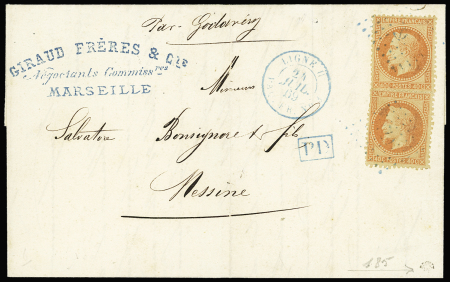 Par Godavéry
GIRAUD FRÈRES & Cie
Négociants Commissres
MARSEILLE
LIGNE H
24
JUIL.
69
Messieurs
Salvatore Bonsignore & fils
P.D.
Messine
685